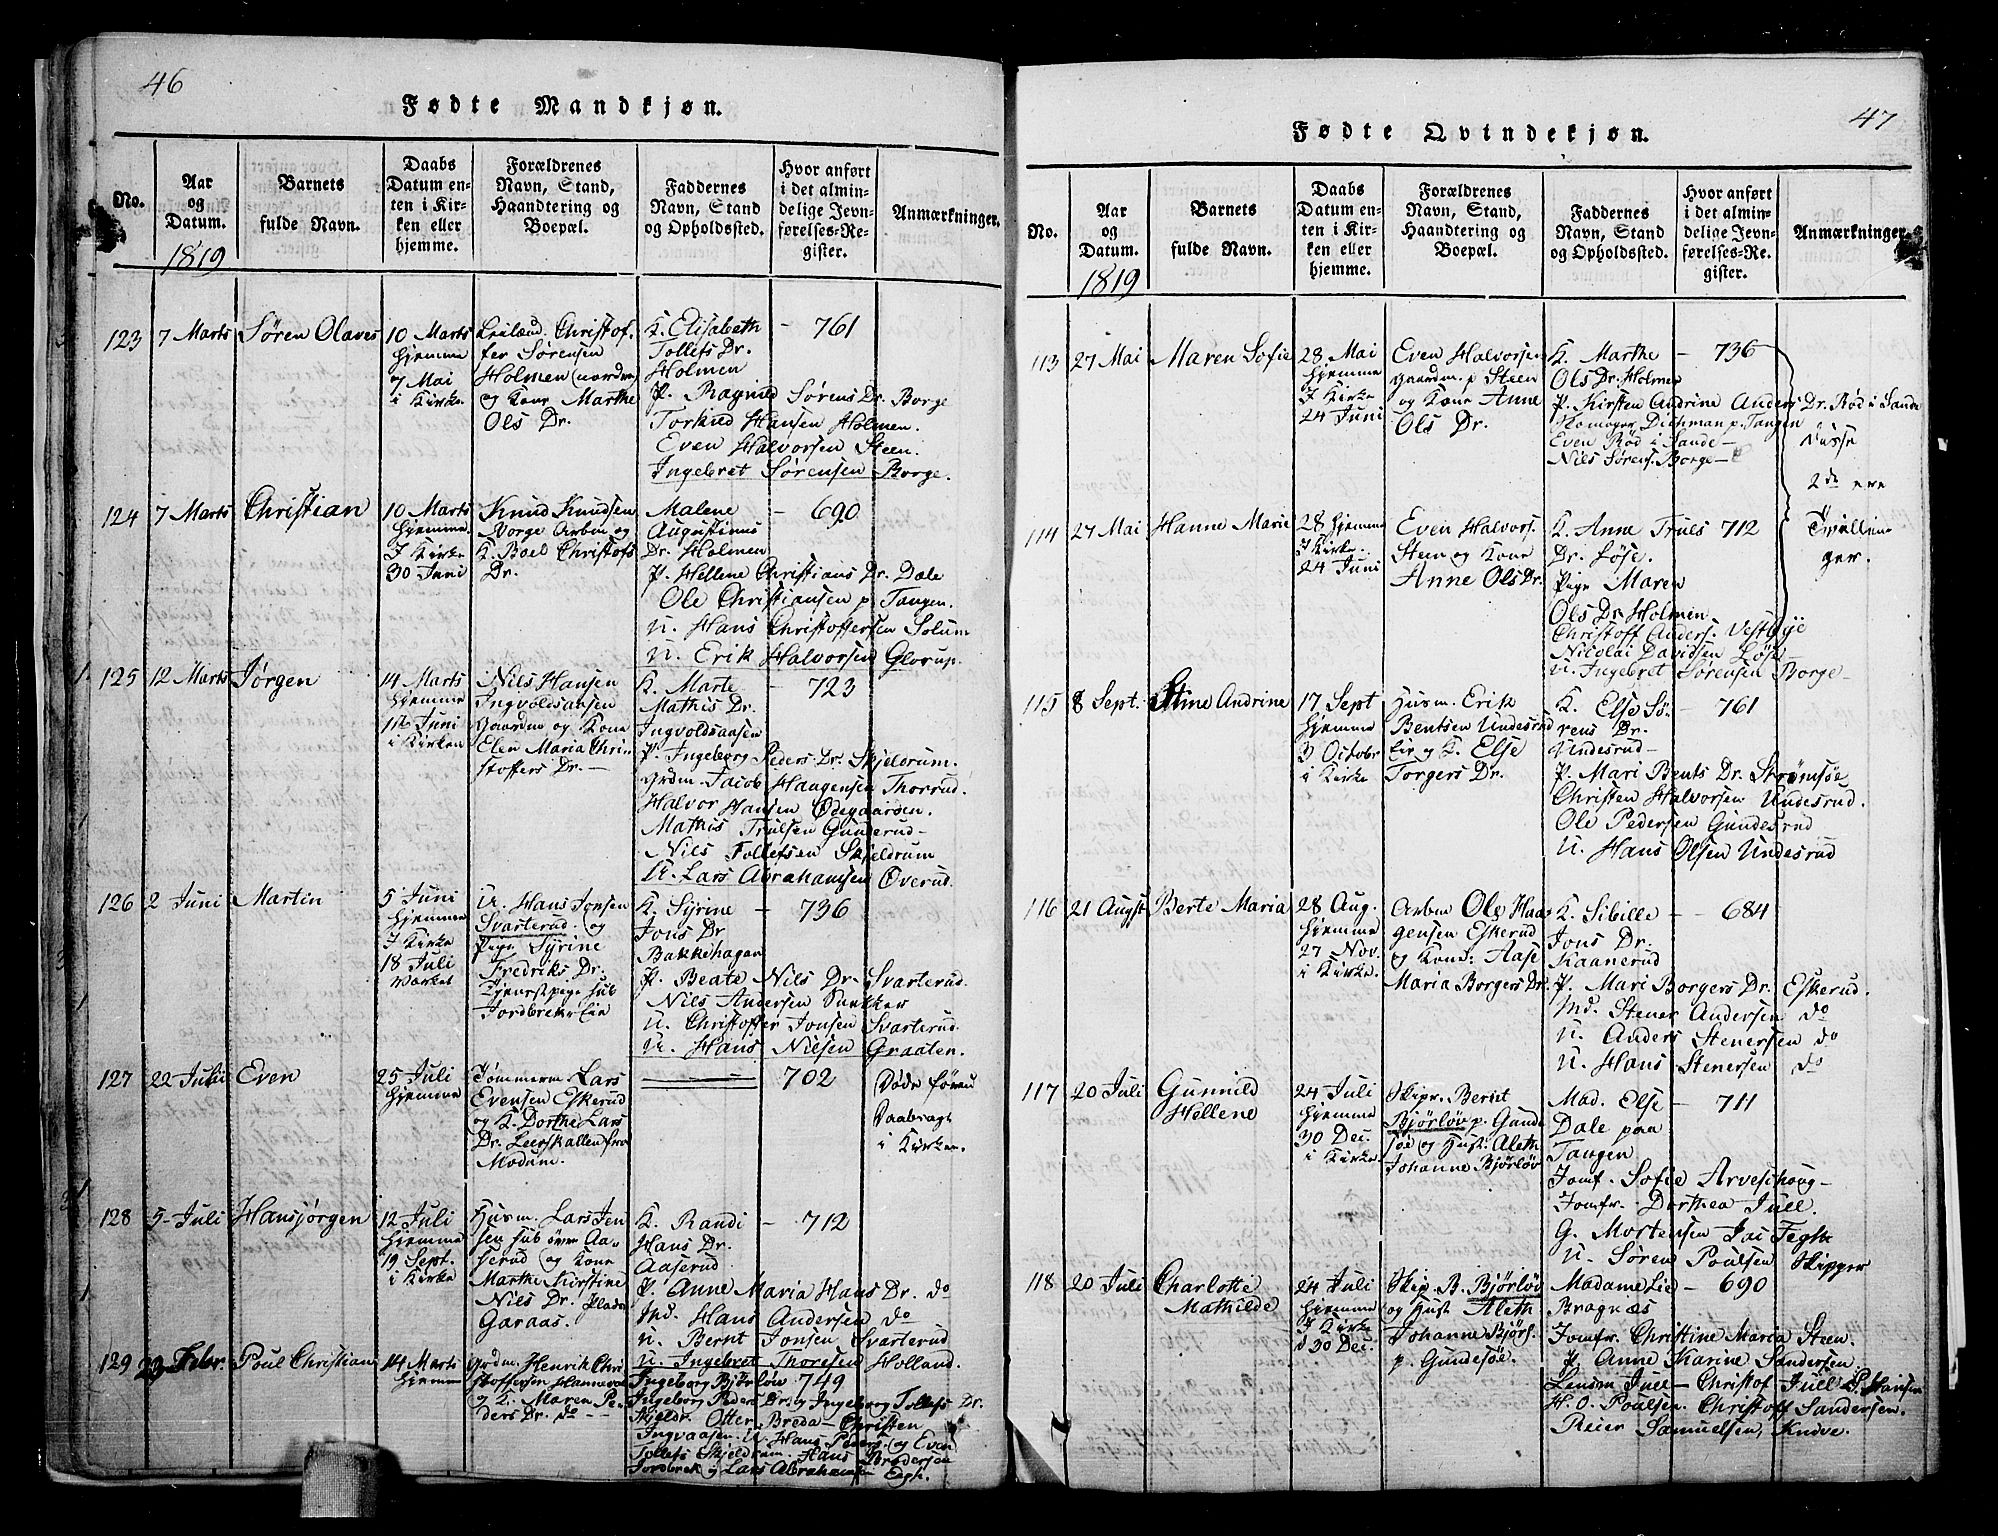 46
Fødte Mandkjøn.
No.
Aar
og
Datum.
1819
Barnets
fulde Navn.
Daabs
Datum en-
ten i Kir-
ken eller
hjemme.
Forældrenes
Navn, Stand,
Haandtering og
Boepæl.
Faddernes
Navn, Stand
og Opholdssted.
Hvor anført
i det almin-
delige Jevn-
førelses-Re-
gister.
Anmærkninger.
123
7 Marts
Søren Olaves
10 Marts
hjemme
7 Mai
i Kirke
Leilænd. Christof-
fer Sørensen
Holmen (nordre)
og Kone Marthe
Ols Dr.
K. Elisabeth
Tollefs Dr.
Holmen
P. Ragnild Sørens Dr. Borge
Torkild Hansen Holmen.
Even Halvorsen Steen.
Ingebret Sørensen Borge.
761
124
7 Marts
Christian
10 Marts
hjemme
I Kirke
30 Juni
Knud Knudsen
Borge Arbm og
K. Boel Christofs
Dr.
Malene
Augustinus
Dr. Holmen
P. Hellene Christians Dr. Dale
Ole Christiansen p Tangen.
U. Hans Christoffersen Solum
U. Erik Halvorsen Glorup.
690
125
12 Marts
Jørgen
14 Marts
hjemme
16 Juni
i Kirken
Nils Hansen
Ingvoldsaasen
Gaardm og Kone
Elen Maria Chri-
stoffers Dr.
K. Marte
Mathis Dr.
Ingvoldsaasen
P. Ingeborg Peders Dr. Skjeldrum.
Grdm. Jacob Haagensen Thorrud.
Halvor Hansen Ødegaarden.
Mathis Trulsen Gunderud-
Nils Tollefsen Skjeldrum
U. Lars Abrahamsen Øverud.
723
126
2 Juni
Martin
5 Juni
hjemme
I Kirke
18 Juli
Værket
U. Hans Jonsen
Svarterud og
Pige Syrine
Fredriks Dr.
Tjenstpige hub
Jordbrek-Eie
K. Syrine
Jons Dr
Bakkehagen
P. Beate Nils Dr Svarterud.
Nils Andersen
U. Christoffer Jonsen Svarterud
U. Hans Nielsen Graaten.
736
127
22 Juli
Even
25 Juli
hjemme
Tømmerm Lars
Evensen Eskerud
og K. Dorthe Lars
Dr. Leerskallen fra
Modum.
702
Døde føren
Daabragt
i Kirken.
128
5 Juli
Hansjørgen
12 Juli
hjemme
19 Sept.
i Kirke
Husm. Lars Jen
sen hub over Aa-
serud og Kone
Marthe Kirstine
Nils Dr. Pladn
Garaas.
K. Randi
Hans Dr.
Aaserud
P. Anne Maria Hans Dr. do
Md. Hans Andersen do
U. Bernt Jonsen Svarterud
U. Ingebret Thoresen Holland.
712
129
23 Febr.
Poul Christian
14 Marts
hjemme
Grdm. Henrik Chri
stoffersen Hannevold
og K. Maren Pe-
ders Dr. do
Ingeborg Bjørløv
Ingeborg Peders Dr. og Ingeborg Tollefs Dr.
Skjeldr. Otter Breda- Christen
Ingvaasen. U. Hans Peders. og Even
Tollefs Skjeldrum. Hans Brodersen
Jordbrek og Lars Abrahamsen
749
47
Fødte Qvindekjøn.
No.
Aar
og
Datum.
1819
Barnets
fulde Navn.
Daabs
Datum en-
ten i Kir-
ken eller
hjemme.
Forældrenes
Navn, Stand,
Haandtering og
Boepæl.
Faddernes
Navn, Stand
og Opholdssted.
Hvor anført
i det almin-
delige Jevn-
førelses-Re-
gister.
Anmærkninger.
113
27 Mai
Maren Sofie
28 Mai
hjemme
I Kirke
24 Juni
Even Halvorsen
Gaardm. p Steen
og Kone Anne
Ols Dr.
K. Marthe
Ols Dr. Holmen
P. Kirsten Andrine Anders Dr. Rød i Sande
Skomager Dichman p. Tangen
Even Rød i Sande-
Nils Sørens. Borge
736
Disse
2de ere
Tvillin
ger.
114
27 Mai
Hanne Marie
28 hjemme
I Kirke
24 Juni
Even Halvors.
Steen og Kone
Anne Ols Dr.
K. Anne Truls
Dr. Løse.
Pige Maren
Ols Dr Holmen
Christoff Anders. Vestbye
Nicolai Davidsen Løse
U. Ingebret Sørensen Borge
712
115
8 Sept.
Stine Andrine
17 Sept
hjemme
3 Octobr
i Kirke
Husm. Erik
Bentsen Undesrud
Eie og K. Else
Torgers Dr.
K. Else Sø-
rens Dr.
Undesrud
P. Mari Bents Dr. Strømsøe
Christen Halvorsen Undesrud.
Ole Pedersen Gundesrud
U. Hans Olsen Undesrud
761
116
21 Augst
Berte Maria
28 Aug.
hjemme
27 Nov.
i Kirke.
Arbm Ole Haa-
gensen Eskerud
og Kone: Aase
Maria Borgers Dr.
K. Sibille
Jons Dr.
Kaanerud
P. Mari Borgers Dr. Eskerud.
Md. Stener Andersen do
U. Anders Stenersen do
U. Hans Stenersen do
684
117
20 Juli
Gunnild
Hellene
24 Juli
hjemme
30 Dec.
i Kirke
Skipr. Bernt
Bjørløv p. Gunde
søe og Hust. Aleth
Johanne Bjørløv
Mad. Else
Dale paa
Tangen
Jomf. Sofie Arveschoug-
Jomfr. Dorthea Juell.
G. Mortensen Fai Fegth
U. Søren Poulsen Skipper
711
118
20 Juli
Charlotte
Mathilde
24 Juli
hjemme
I Kirke
d 30 Dec.
Skip. B. Bjørløv
og Hust Aleth
Johanne Bjørs.
p. Gundesøe.
Madame Lie
Bragnæs
Jomfr. Christine Maria Steen.
P. Anne Karine Sandersen
Lensm Juel- Christof Juell S. Hansen
H. O. Poulsen. Christoff Sandersen.
Reier Samuelsen, Knive.
690